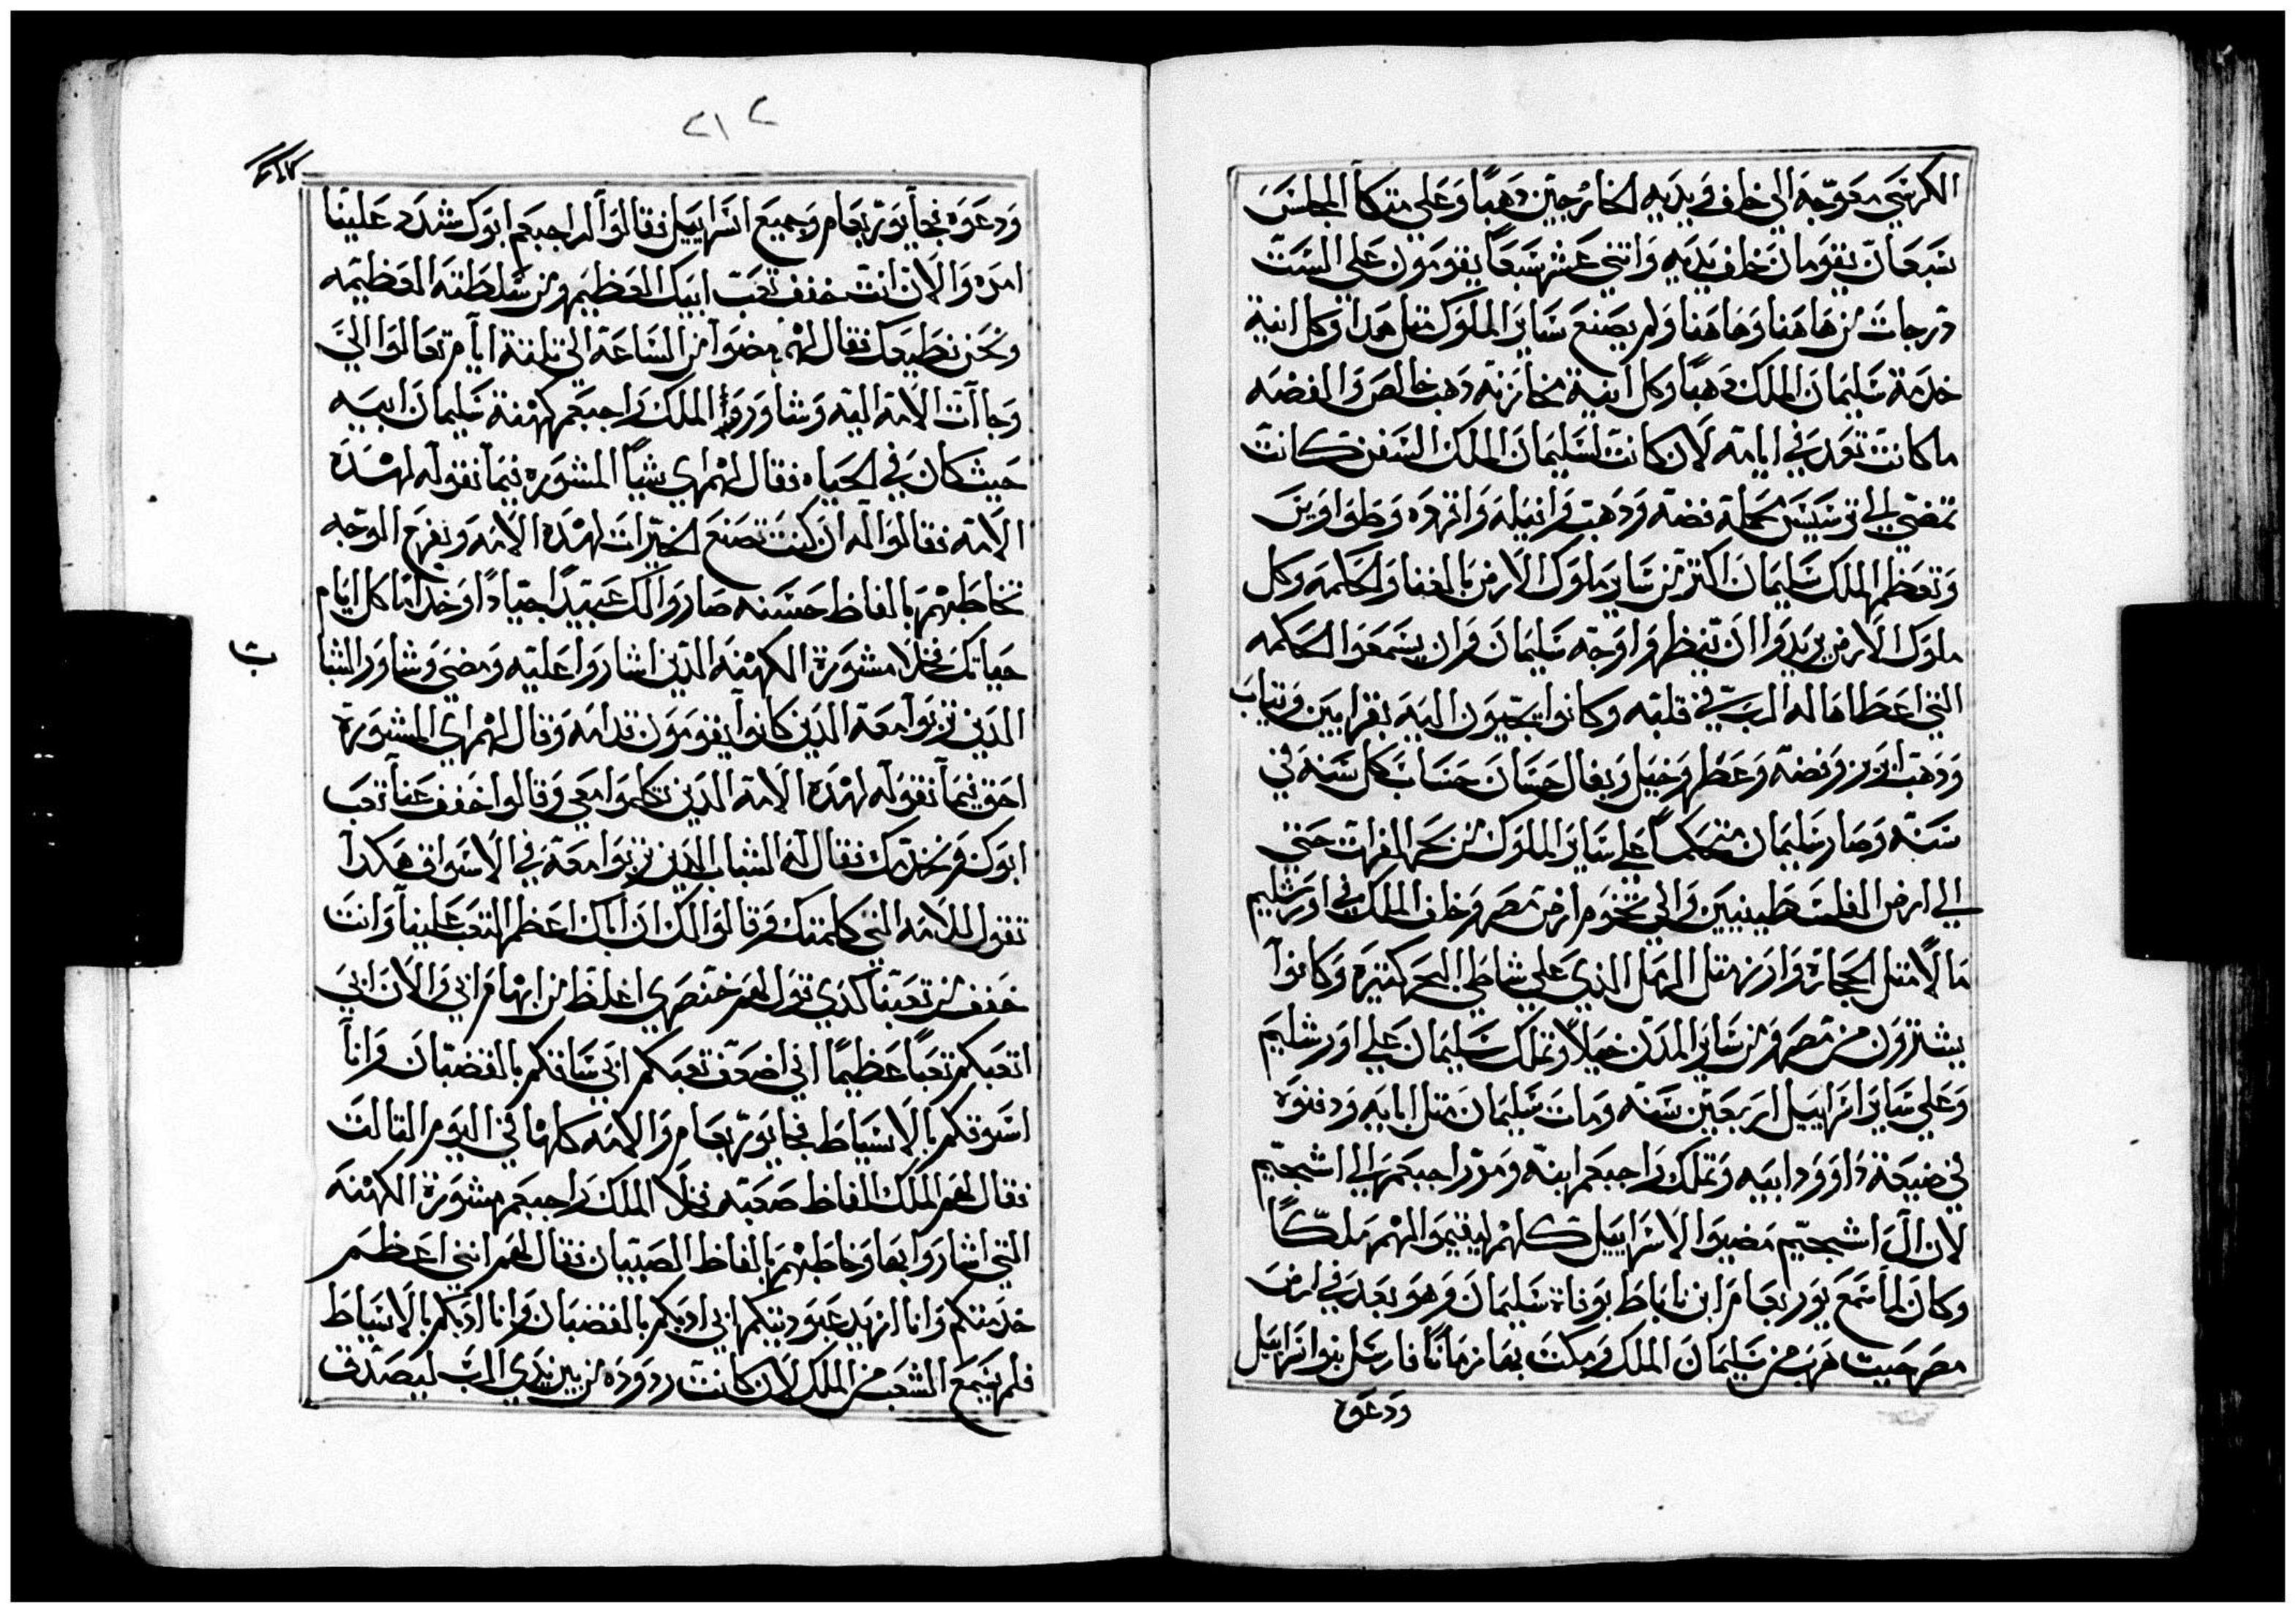 الكرسي معوجه الي خلف في يديه الخارجتين دهبًا وعلي متكا المجلس
سبعان يقومان خلف يديه واثني عشر سبعًا يقومون علي الست
درجات من هاهنا وهاهنا ولم يصنع ساير الملوك مثل هدا وكل انية
خدمة سليمان الملك دهبًا وكل انية مخازنه دهب خالص والفضه
ما كانت تعد في ايامه لان كانت لسليمان الملك السفن كانت
تمضي الي ترسيس بحملة فضه ودهب وانيله وانهره وطواويس
وتعظم الملك سليمان اكتر من ساير ملوك الارض بالغنا والحكمه وكل
ملوك الارض يريدوا ان ينظروا وجه سليمان وان يسمعوا الحكمه
التي اعطاها له الرب في قلبه وكانوا يجيون اليه بقرابين وتياب
ودهب ابريز وفضه وعطر وخيل وبغال حسان حساب كل سنه في
سنه وصار سليمان متحكمًا علي ساير الملوك من بحر الفرات حتي
الي ارض الفلسطينيين والي تخوم ارض مصر وخلف الملك في اورشليم
مالًا متل الحجارة وارز متل الرمل الذي علي شاطي البحر كتيره وكانوا
يشترون من مصر ومن ساير المدن خيلًا وتملك سليمان علي اورشليم
وعلي ساير اسراييل اربعين سنه ومات سليمان متل ابايه ودفنوه
في ضيعة داوود ابيه وتملك راحبعم ابنه ومر راحبعم الي اشجيم
لان الي اشجيم مضيوا الاسراييل كلهم ليقيموا لهم ملكًا
وكان لما سمع يوربعام ابن ناباط بوفاة سليمان وهو بعد في ارض
مصر حيت هرب من سليمان الملك ومكت بها زمانًا فارسل بنوا اسراييل
ودعوه
٢١٢
ودعوه فجا يوربعام وجميع اسراييل فقالوا لراحبعم ابوك شدد علينا
امره والان انت خفف تعب ابيك العظيم ومن سلطته العظيمه
ونحن نطيعك فقال لهم امضوا من الساعة الي تلتة ايام تعالوا الي
وجاات الامة اليه وشاوروا الملك راحبعم كهنة سليمان ابيه
حيث كان في الحياه فقال لهم اي شيًا المشوره فيما نقوله لهده
الامه فقالوا له ان كنت تصنع الخيرات لهده الامه وبفرح الوجه
تخاطبهم بالفاظ حسنه صاروا لك عبيدًا جيادًا وخدامًا كل ايام
حياتك فخلا مشورة الكهنه الدين اشاروا عليه ومضي وشاور الشبا
ب
الدين تربوا معه الدين كانوا يقومون قدامه وقال لهم اي المشورة
احق فيما نقوله لهده الامه الدين تكلموا معي وقالوا خفف عنا تعب
ابوك ونخدمك فقال له الشباب الدين تربوا معه في الاسواق هكدا
تقول للامه التي كلمتك وقالوا لك ان اباك اعظم التعب علينا وانت
خفف من تعبنا كدي تقول لهم خنصري اغلظ من ابهام ابي والان ابي
اتعبكم تعبًا عظيمًا اني اضعف تعبكم ابي ساقكم بالقضبان وانا
اسوقكم بالاسياط فجا يوربعام والامه كلها في اليوم التالت
فقال لهم الملك الفاظ صعبه فخلا الملك راحبعم مشورة الكهنه
التي اشاروا بها وخاطبهم بالفاظ الصبيان فقال لهم انني اعظم
خدمتكم وانا ازيد عبوديتكم ابي ادبكم بالقضبان وانا ادبكم بالاسياط
فلم يسمع الشعب من الملك لان كانت ردوده من بين يدي الرب ليصدق